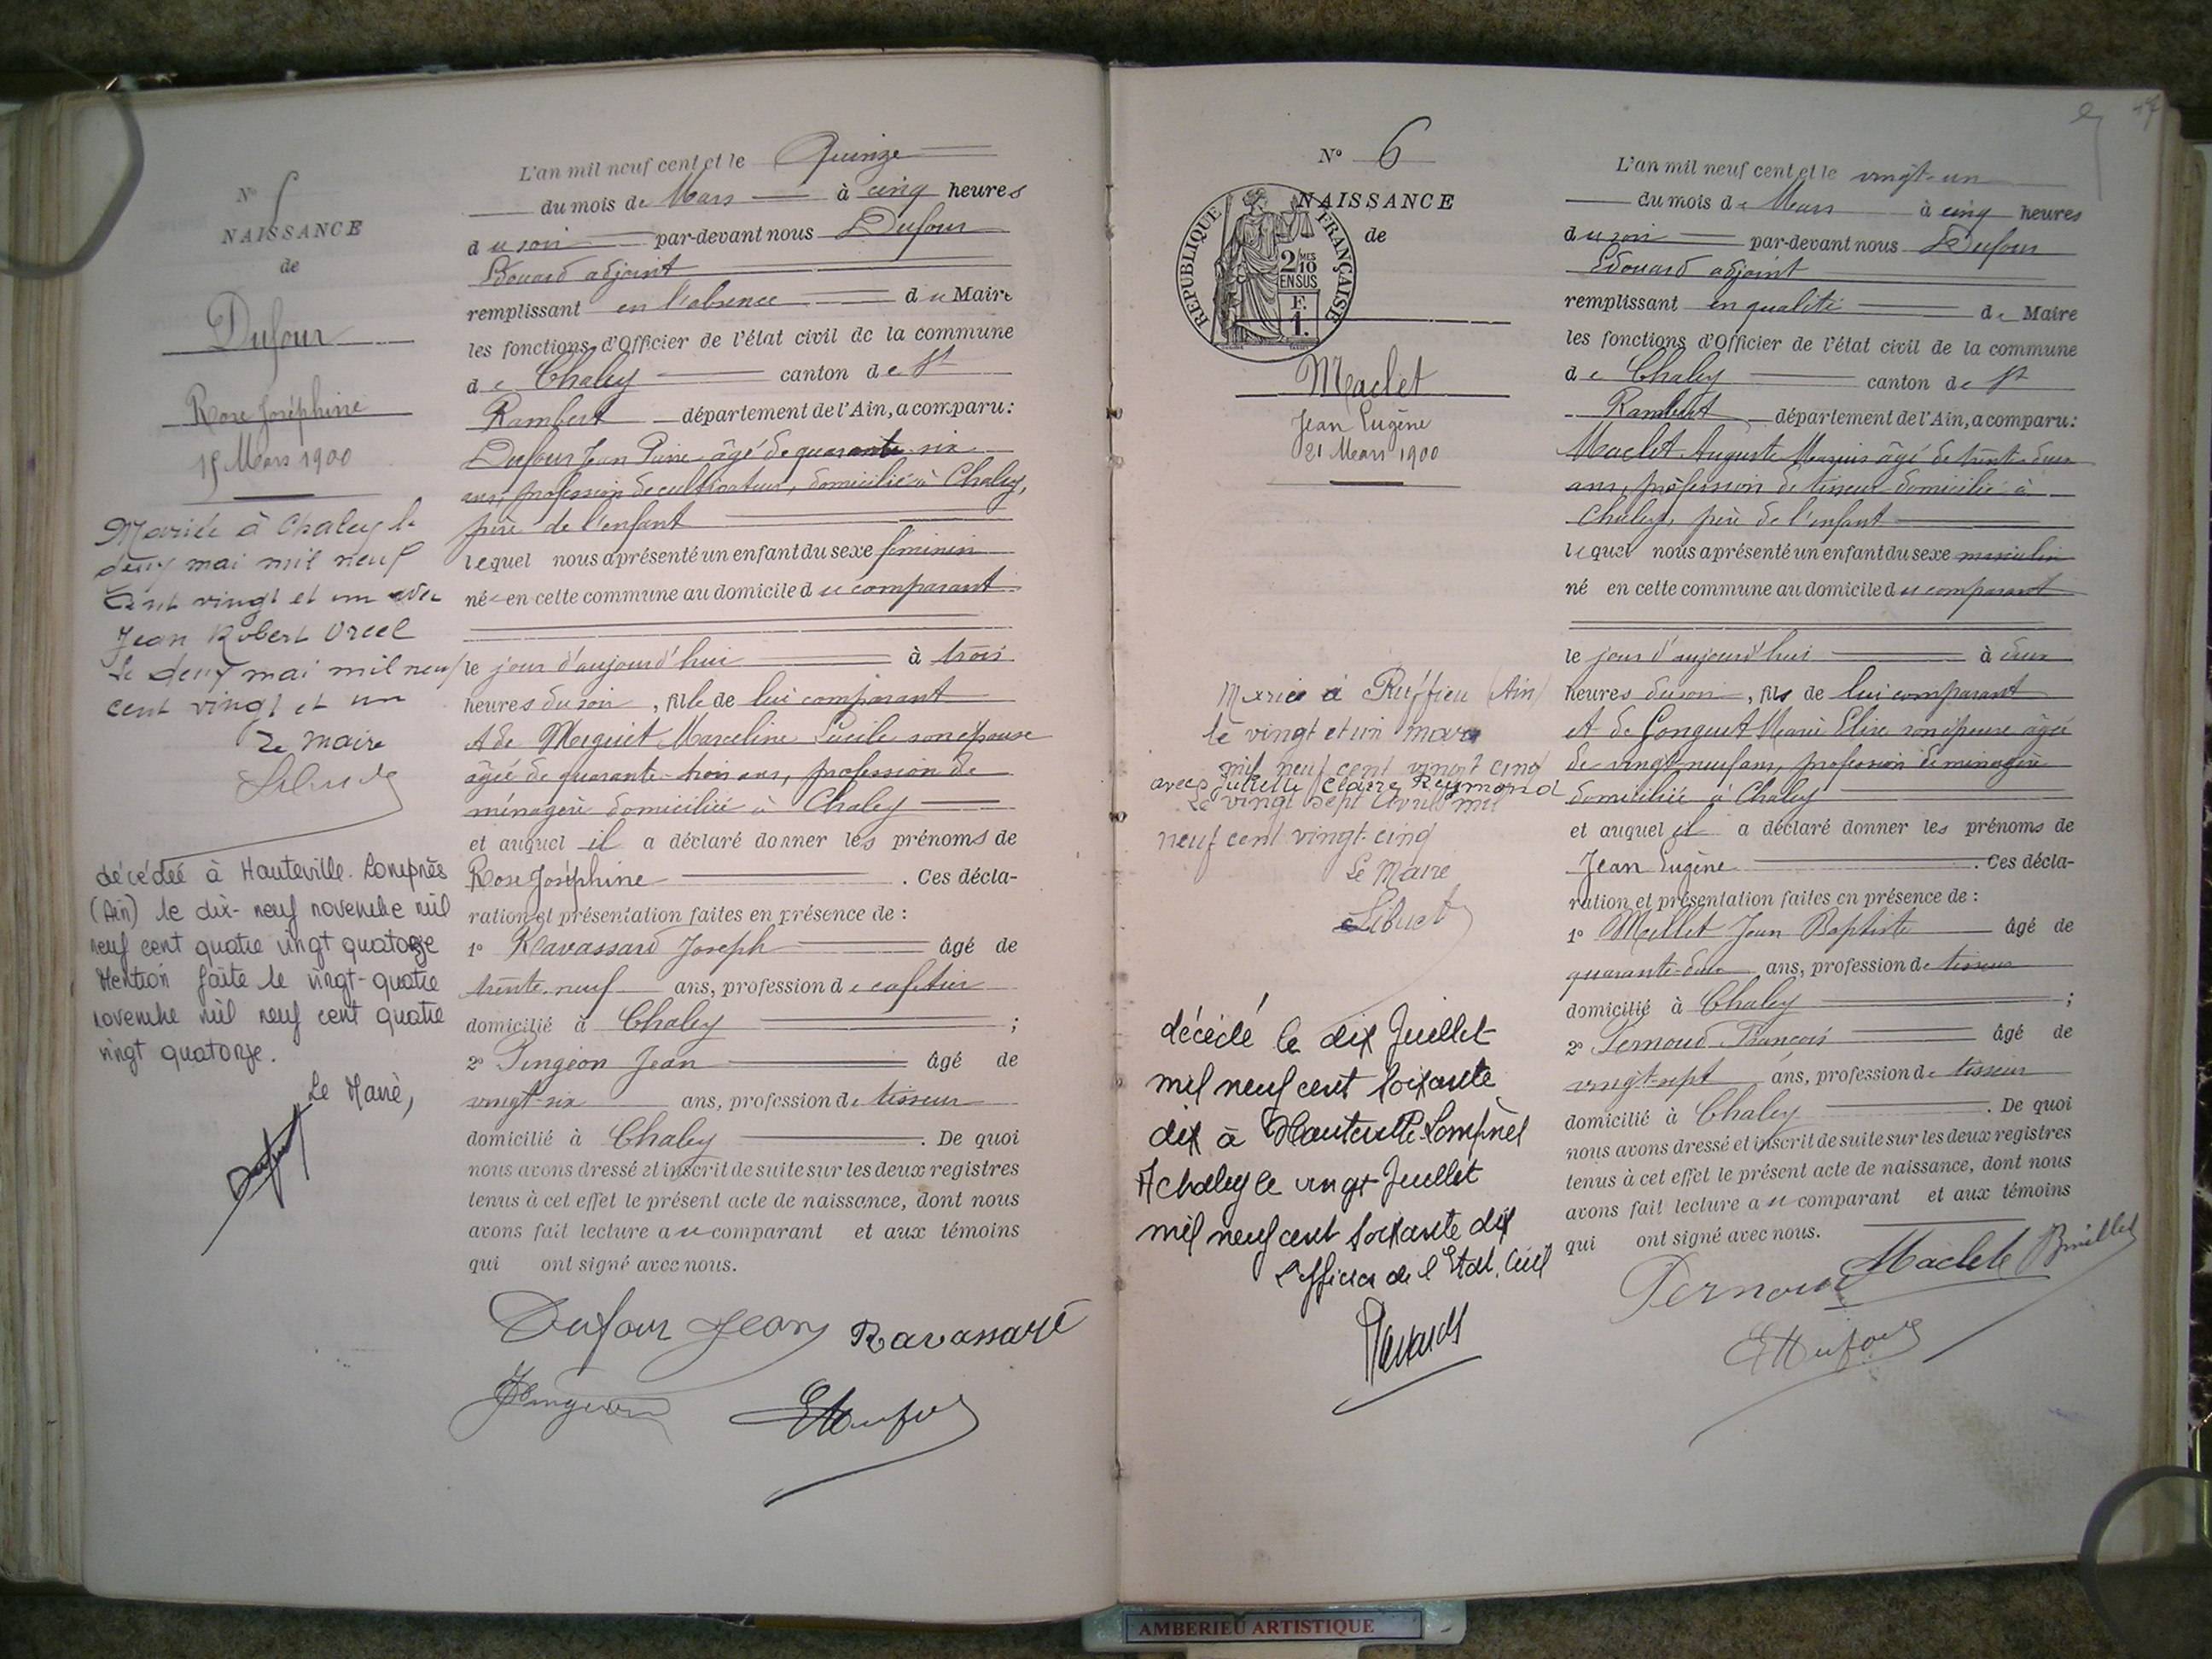 N° 5
NAISSANCE
de
Dufour
Rose Joséphine
15 Mars 1900
Mariée à Chaley le
deux mai mil neuf
cent vingt et un avec
Jean Robert Orcel
Le deux mai mil neuf
cent vingt et un
Le Maire
décédée à Hauteville-Lompnès
(Ain) le dix-neuf novembre mil
neuf cent quatre vingt quatorze
Mention faite le vingt-quatre
novembre mil neuf cent quatre
vingt quatorze.
Le Maire,
L'an mil neuf cent et le Quinze
du mois de Mars à cinq heures
du soir par-devant nous Dufour
Edouard adjoint
remplissant en l'absence du Maire
les fonctions d'Officier de l'état civil de la commune
de Chaley canton de St
Rambert département de l'Ain, a comparu:
Dufour Jean Pierre âgé de quarante-six
ans, profession de cultivateur, domicilié à Chaley,
père de l'enfant
lequel nous a présenté un enfant du sexe féminin
née en cette commune au domicile du comparant
le jour d'aujourd'hui à trois
heures du soir, fille de lui comparant
et de Marceline Lucile son épouse
âgée de quarante-trois ans, profession de
ménagère domiciliée à Chaley
et auquel il a déclaré donner les prénoms de
Rose Joséphine. Ces décla-
ration et présentation faites en présence de :
1° Ravassard Joseph âgé de
trente-neuf ans, profession de cafetier
domicilié à Chaley ;
2° Pingeon Jean âgé de
vingt-six ans, profession de tisseur
domicilié à Chaley. De quoi
nous avons dressé et inscrit de suite sur les deux registres
tenus à cet effet le présent acte de naissance, dont nous
avons fait lecture au comparant et aux témoins
qui ont signé avec nous.
Dufour Jean Ravassard
JPingeon EDufour
N° 6
NAISSANCE
de
RÉPUBLIQUE FRANÇAISE
2/10 MES
EN SUS
F.
1.
Maclet
Jean Eugène
21 Mars 1900
Marié à Ruffieu (Ain)
le vingt et un mars
mil neuf cent vingt cinq
avec Juliette Claire Reymond
Le vingt sept Avril mil
neuf cent vingt-cinq
Le Maire
décédé le dix Juillet
mil neuf cent soixante
dix à Hauteville-Lompnès
A chaley le vingt Juillet
mil neuf cent soixante dix
L'officier de l'Etat Civil
L'an mil neuf cent et le vingt-un
du mois de Mars à cinq heures
du soir par-devant nous Dufour
Edouard adjoint
remplissant en qualité de Maire
les fonctions d'Officier de l'état civil de la commune
de Chaley canton de St
Rambert département de l'Ain, a comparu:
Maclet Auguste âgé de trente-deux
ans, profession de tisseur domicilié à
Chaley, père de l'enfant
lequel nous a présenté un enfant du sexe masculin
né en cette commune au domicile du comparant
le jour d'aujourd'hui à deux
heures du soir, fils de lui comparant
et de Gonguet Marie Elise son épouse âgée
de vingt-neuf ans, profession de ménagère
domiciliée à Chaley
et auquel il a déclaré donner les prénoms de
Jean Eugène. Ces décla-
ration et présentation faites en présence de :
1° Millet Jean Baptiste âgé de
quarante-deux ans, profession de tisseur
domicilié à Chaley ;
2° Pernoud François âgé de
vingt-sept ans, profession de tisseur
domicilié à Chaley. De quoi
nous avons dressé et inscrit de suite sur les deux registres
tenus à cet effet le présent acte de naissance, dont nous
avons fait lecture au comparant et aux témoins
qui ont signé avec nous.
Pernoud Maclet
EDufour
AMBERIEU ARTISTIQUE